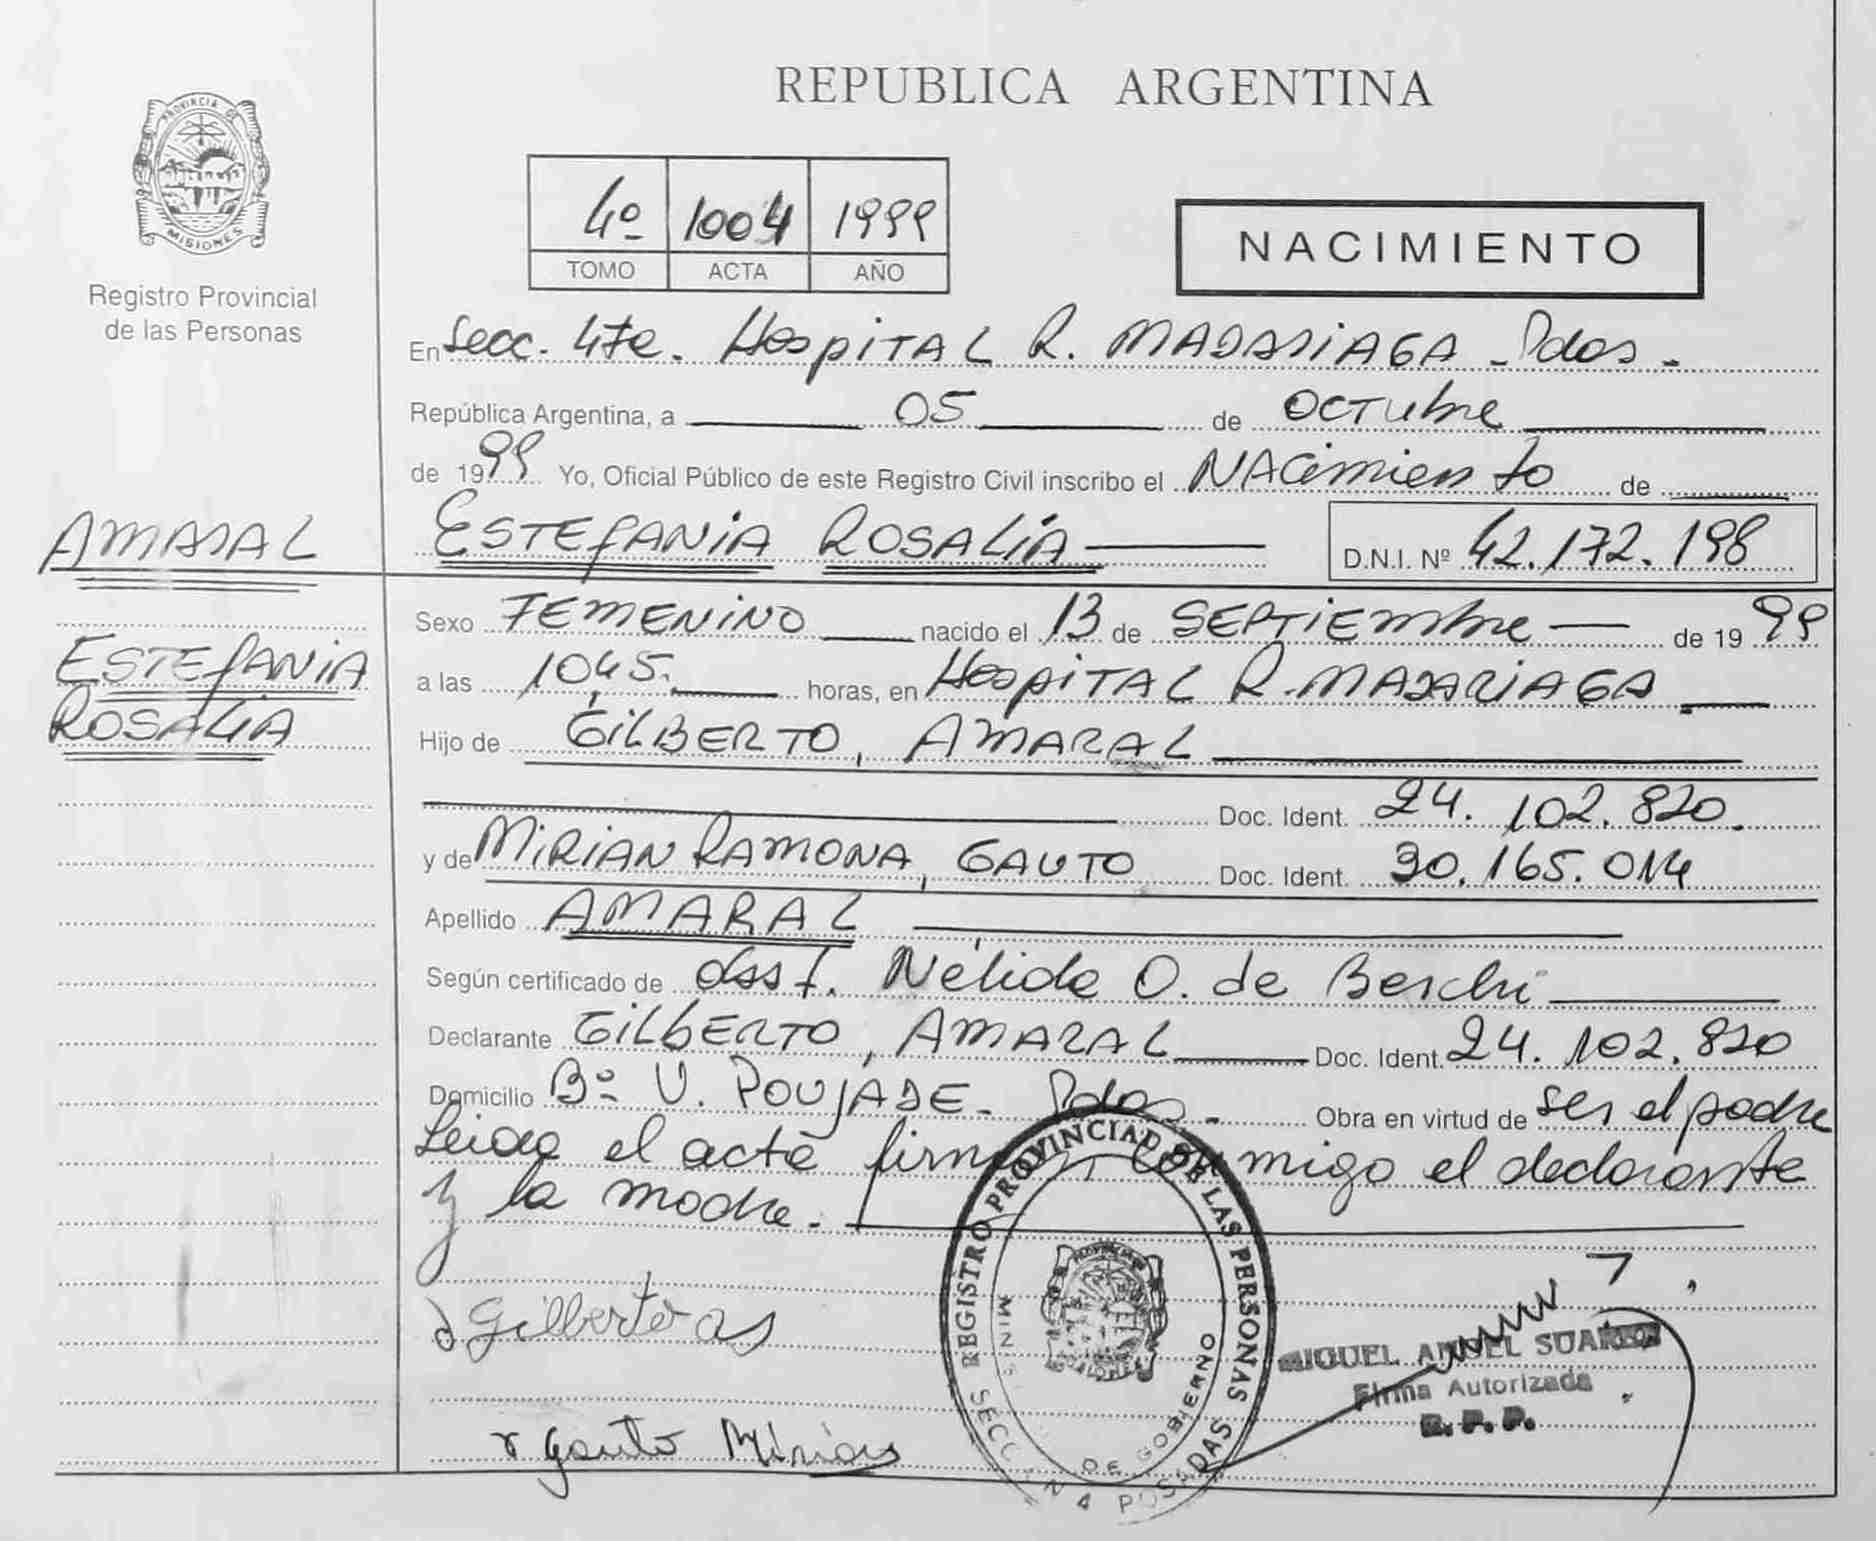 PROVINCIA DE
MISIONES
Registro Provincial
de las Personas
AMARAL
ESTEFANIA
ROSALIA
REPUBLICA ARGENTINA
4º 1004 1999
TOMO ACTA AÑO
NACIMIENTO
En Secc. 4ta. HOSPITAL R. MADARIAGA - Pdas.
República Argentina, a 05 de OCTUbre
de 1999 Yo, Oficial Público de este Registro Civil inscribo el NACimienTo de
ESTEFANIA ROSALÍA D.N.I. Nº 42.172.198
Sexo FEMENINO nacido el 13 de SEPTIEmbre de 1999
a las 10,45. horas, en HOSPITAL R. MADARIAGA
Hijo de GILBERTO, AMARAL
Doc. Ident. 24.102.820.
y de MIRIAN RAMONA, GAUTO Doc. Ident. 30.165.014
Apellido AMARAL
Según certificado de Obst. Nélida O. de Berchi
Declarante GILBERTO, AMARAL Doc. Ident. 24.102.820
Domicilio Bº U. POUJADE - Pdas. Obra en virtud de ser el padre
Leida el acta firman conmigo el declarante
y la madre.
REGISTRO PROVINCIAL DE LAS PERSONAS
SECCION 4 POSADAS
DE GOBIERNO
MISIONES
MIGUEL ANGEL SUAREZ
Firma Autorizada
R. P. P.
Gauto Mirian